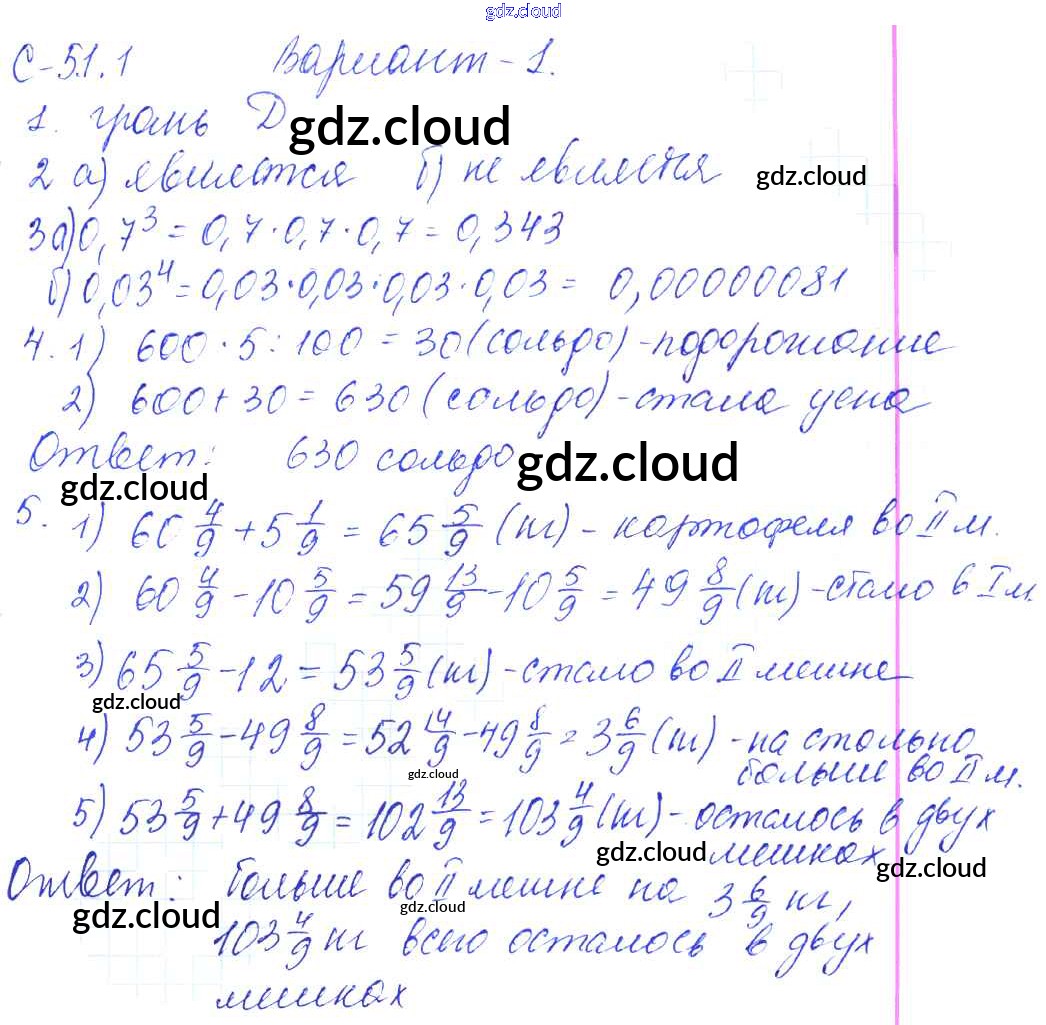 gdz.cloud
С-51.1 Вариант-1.
1. грань D
gdz.cloud
2 а) является б) не является
gdz.cloud
3а) 0,7³ = 0,7·0,7·0,7 = 0,343
б) 0,03⁴ = 0,03·0,03·0,03·0,03 = 0,00000081
4. 1) 600·5:100 = 30 (сольдо) - подорожание
2) 600+30 = 630 (сольдо) - стала цена
Ответ: 630 сольдо
gdz.cloud
gdz.cloud
5. 1) 60 4/9 + 5 1/9 = 65 5/9 (кг) - картофеля во II м.
2) 60 4/9 - 10 5/9 = 59 13/9 - 10 5/9 = 49 8/9 (кг) - стало в I м.
3) 65 5/9 - 12 = 53 5/9 (кг) - стало во II мешке
gdz.cloud
4) 53 5/9 - 49 8/9 = 52 14/9 - 49 8/9 = 3 6/9 (кг) - на столько
больше во II м.
gdz.cloud
5) 53 5/9 + 49 8/9 = 102 13/9 = 103 4/9 (кг) - осталось в двух
мешках
gdz.cloud
gdz.cloud
Ответ: больше во II мешке на 3 6/9 кг,
gdz.cloud
gdz.cloud
103 4/9 кг всего осталось в двух
мешках